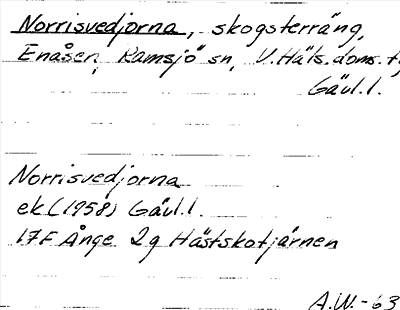 Norrisvedjorna, skogsterräng,
Enåsen, Ramsjö sn, V. Häls. doms. t,
Gävl. l.
Norrisvedjorna
ek (1958) Gävl. l.
17F Ånge 2g Hästskotjärnen
A.W.-63